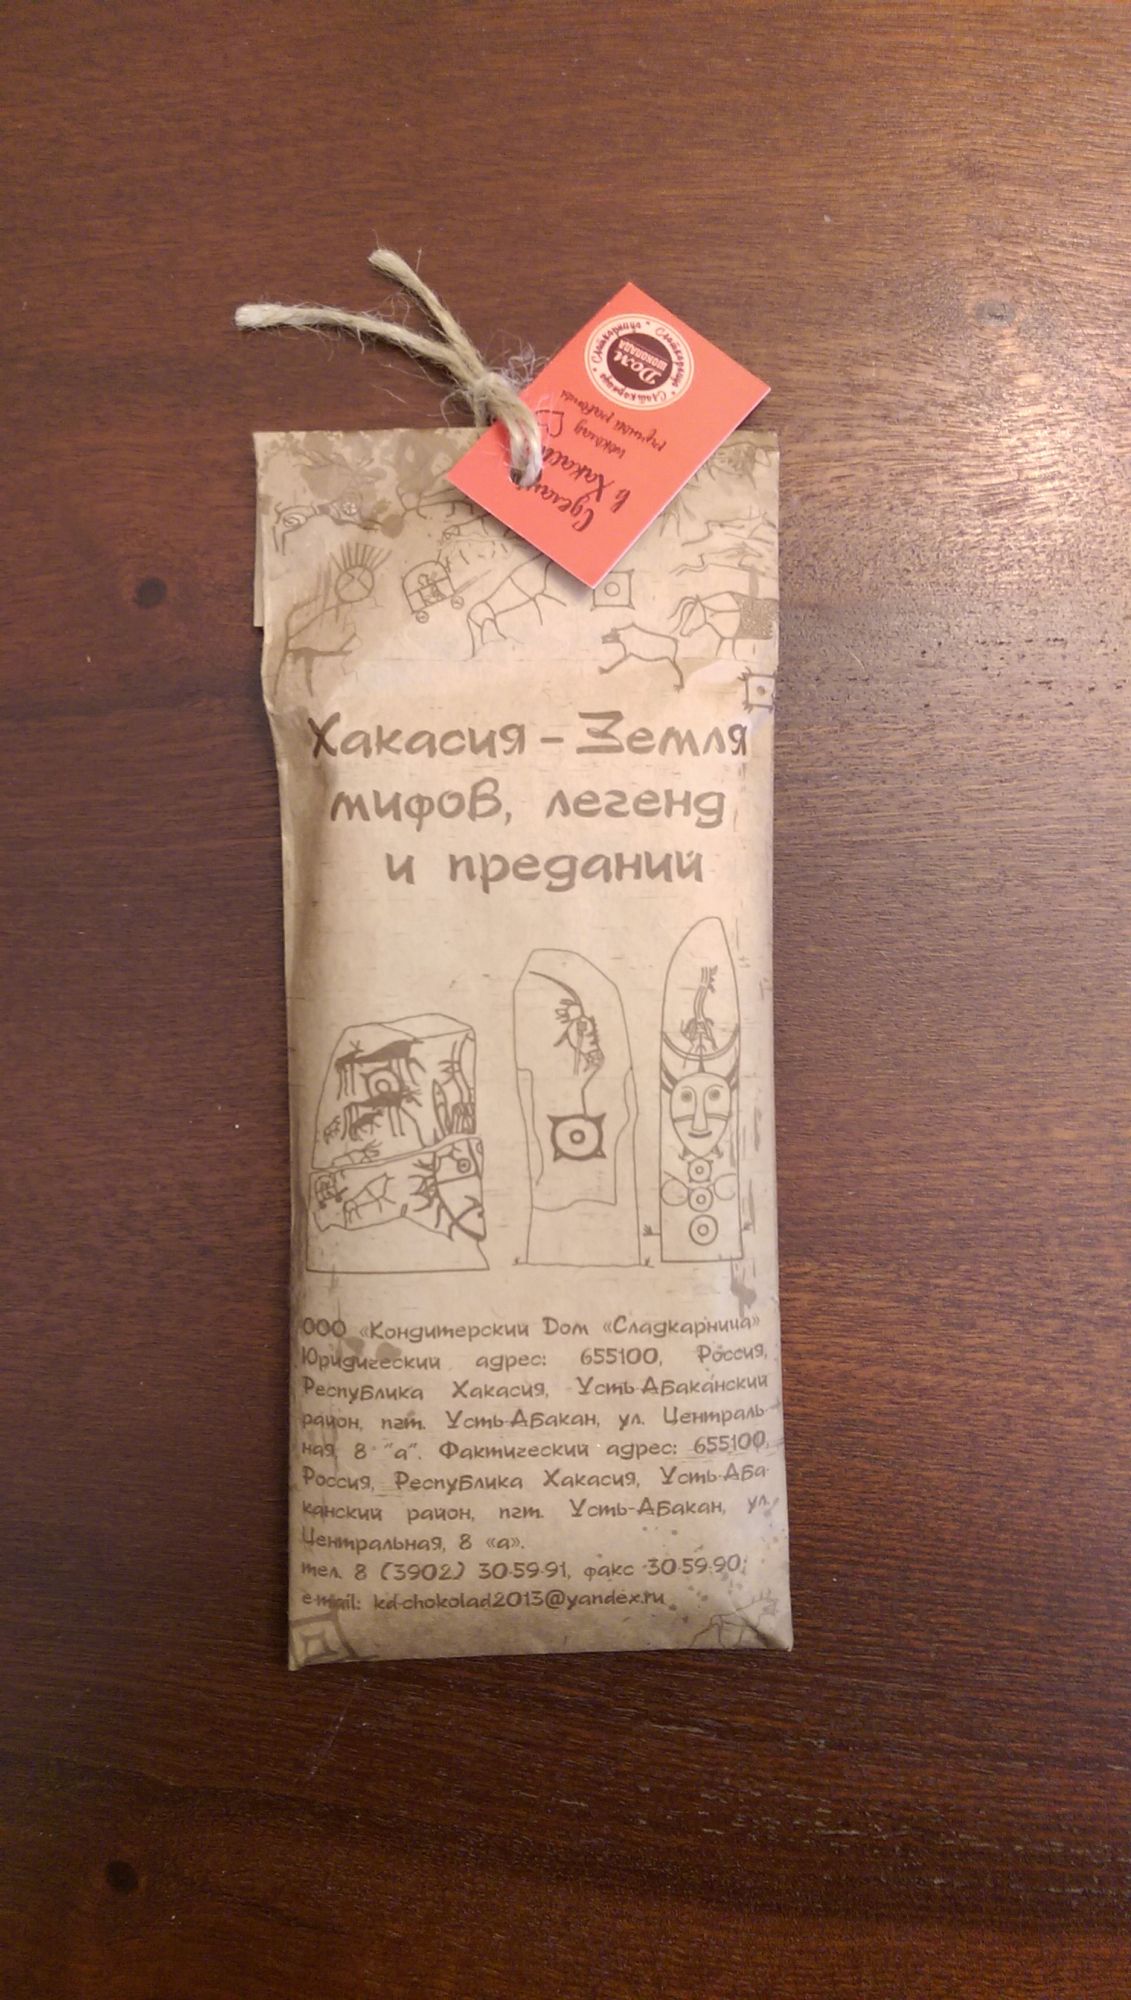 Сладкарница * Сладкарница * Сладкарница *
Дом
ШОКОЛАДА
шоколад
ручной работы
в Хакасии
Хакасия – Земля
мифов, легенд
и преданий
ООО «Кондитерский Дом «Сладкарница»
Юридический адрес: 655100, Россия,
Республика Хакасия, Усть-Абаканский
район, пгт. Усть-Абакан, ул. Централь-
ная, 8 "а". Фактический адрес: 655100,
Россия, Республика Хакасия, Усть-Аба-
канский район, пгт. Усть-Абакан, ул.
Центральная, 8 «а».
тел. 8 (3902) 30-59-91, факс 30-59-90;
e-mail: kd-chokolad2013@yandex.ru